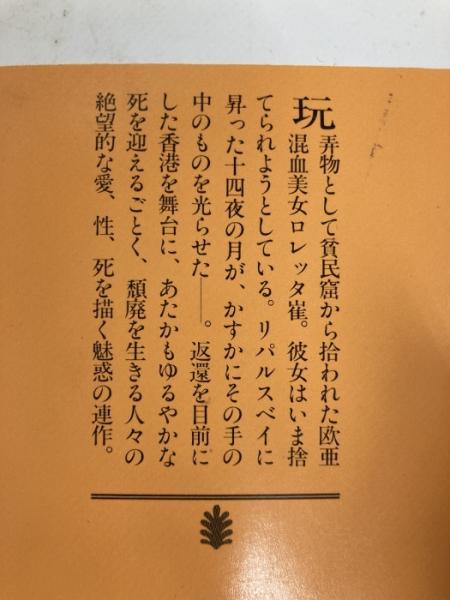 玩弄物として貧民窟から拾われた欧亜
混血美女ロレッタ崔。彼女はいま捨
てられようとしている。リパルスベイに
昇った十四夜の月が、かすかにその手の
中のものを光らせた――。返還を目前に
した香港を舞台に、あたかもゆるやかな
死を迎えるごとく、頽廃を生きる人々の
絶望的な愛、性、死を描く魅惑の連作。